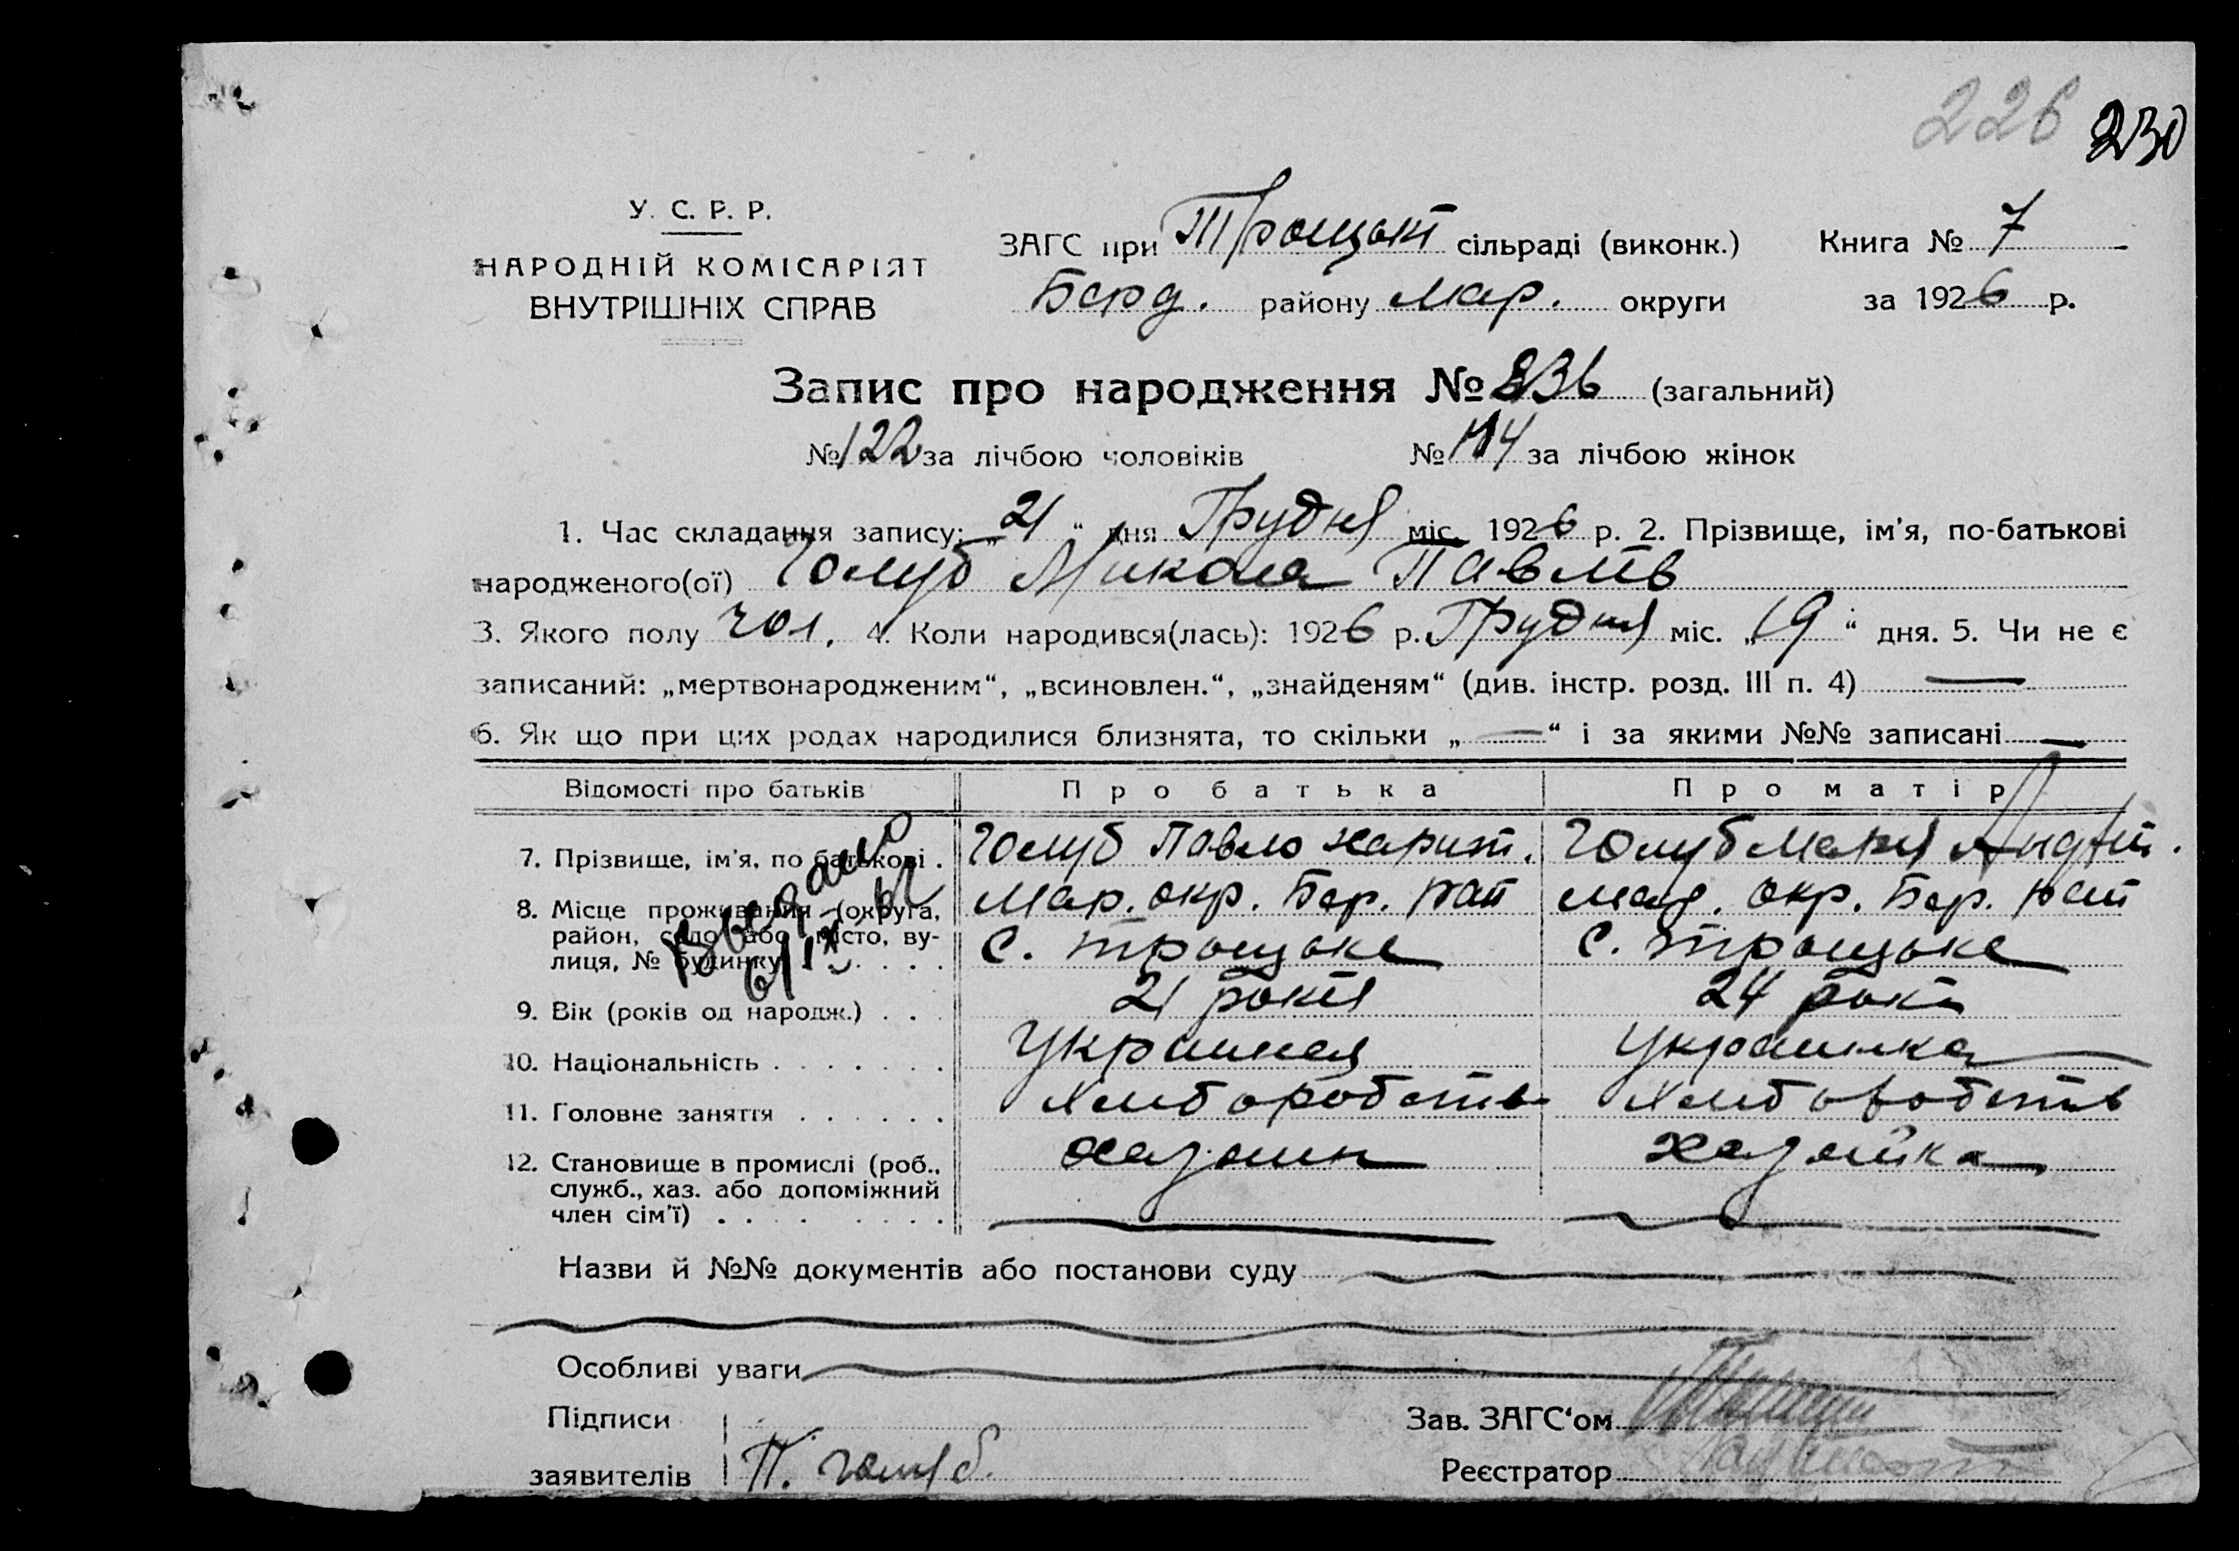 226 230
У. С. Р. Р.
НАРОДНІЙ КОМІСАРІЯТ
ВНУТРІШНІХ СПРАВ
ЗАГС при Троцькій сільраді (виконк.) Книга № 7
Берд. району Мар. округи за 1926 р.
Запис про народження № 236 (загальний)
№ 122 за лічбою чоловіків № 114 за лічбою жінок
1. Час складання запису: „21“ дня Грудня міс. 1926 р. 2. Прізвище, ім'я, по-батькові
народженого(ої) Голуб Микола Павлів
3. Якого полу чол. 4. Коли народився(лась): 1926 р. Грудня міс. „19“ дня. 5. Чи не є
записаний: „мертвонародженим“, „всиновлен.“, „знайденям“ (див. інстр. розд. III п. 4) —
6. Як що при цих родах народилися близнята, то скільки „—“ і за якими №№ записані —
Відомості про батьків Про батька Про матір
7. Прізвище, ім'я, по батькові . Голуб Павло Харит. Голуб Мария
8. Місце проживання (округа, Мар. окр. Бер. рай Мар. окр. Бер. рай
район, село або місто, ву- с. Троцьке с. Троцьке
лиця, № будинку)
9. Вік (років од народж.) . . . 21 років 24 роки
10. Національність . . . . . . . Украинец Украинка
11. Головне заняття . . . . . . Хлиборобств Хлиборобств
12. Становище в промислі (роб., хазяин хазяйка
служб., хаз. або допоміжний
член сім'ї) . . . . . . . .
6/IX
Назви й №№ документів або постанови суду
Особливі уваги
Підписи
заявителів П. Голуб
Зав. ЗАГС'ом
Реєстратор